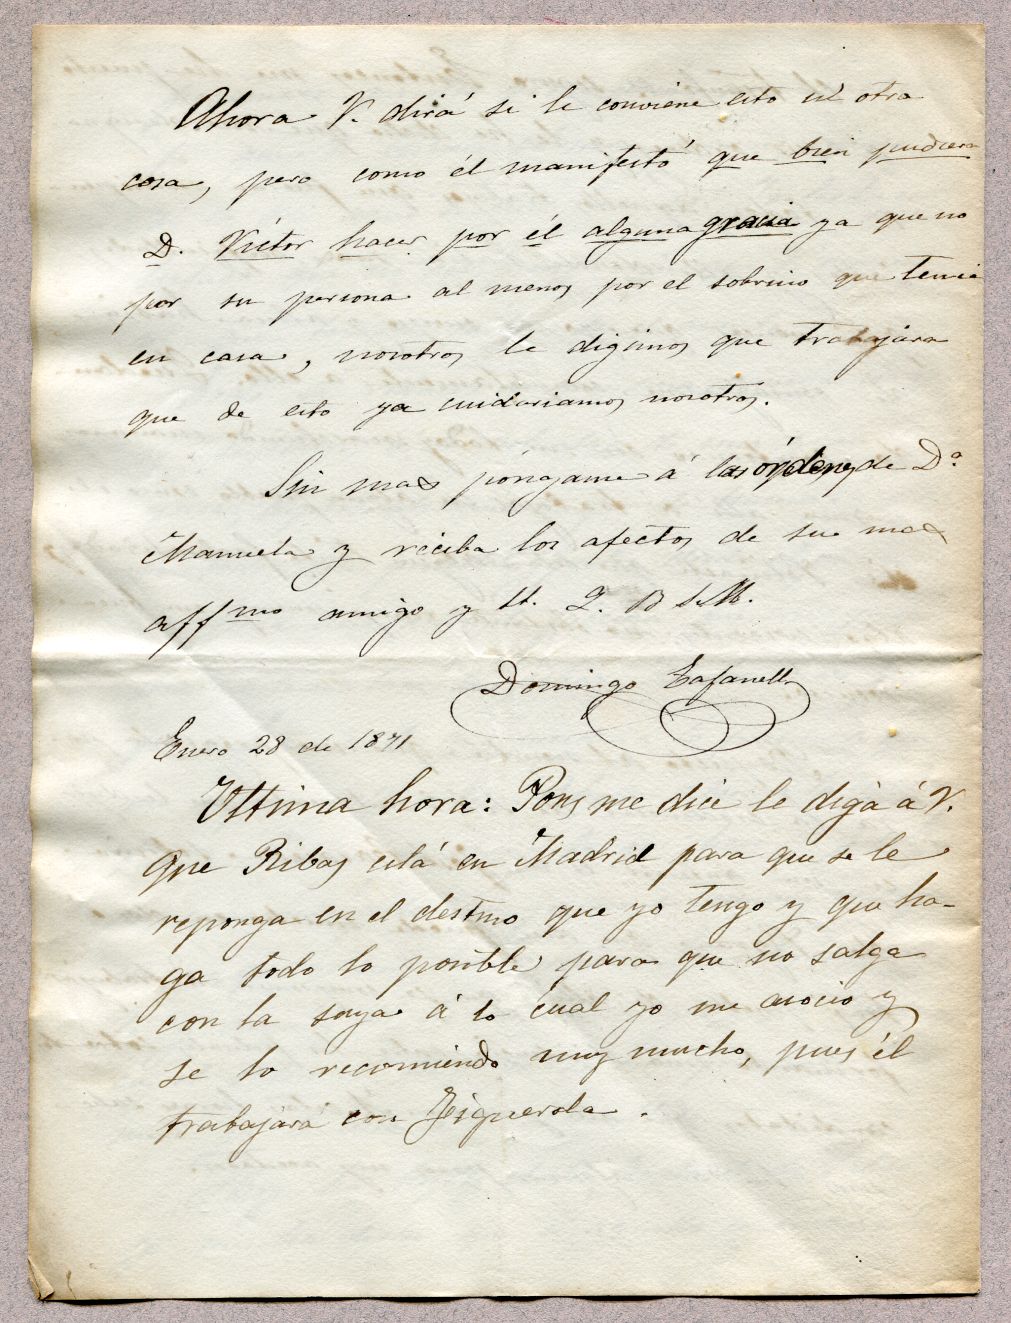 Ahora V. dirá si le conviene esto ú otra
cosa, pero como él manifestó que bien pudiera
D. Victor hacer por él alguna gracia ya que no
por su persona al menos por el sobrino que tenia
en casa, nosotros le digimos que trabajára
que de esto ya cuidariamos nosotros.
Sin mas póngame á las órdenes de Dª
Manuela y reciba los afectos de su mas
affmo amigo y S. Q. B. S. M.
Domingo Tafanell
Enero 28 de 1871
Ultima hora: Pons me dice le diga á V.
que Ribas está en Madrid para que se le
reponga en el destino que yo tengo y que ha-
ga todo lo posible para que no salga
con la suya á lo cual yo me asocio y
se lo recomiendo muy mucho, pues él
trabajará con Figuerola.